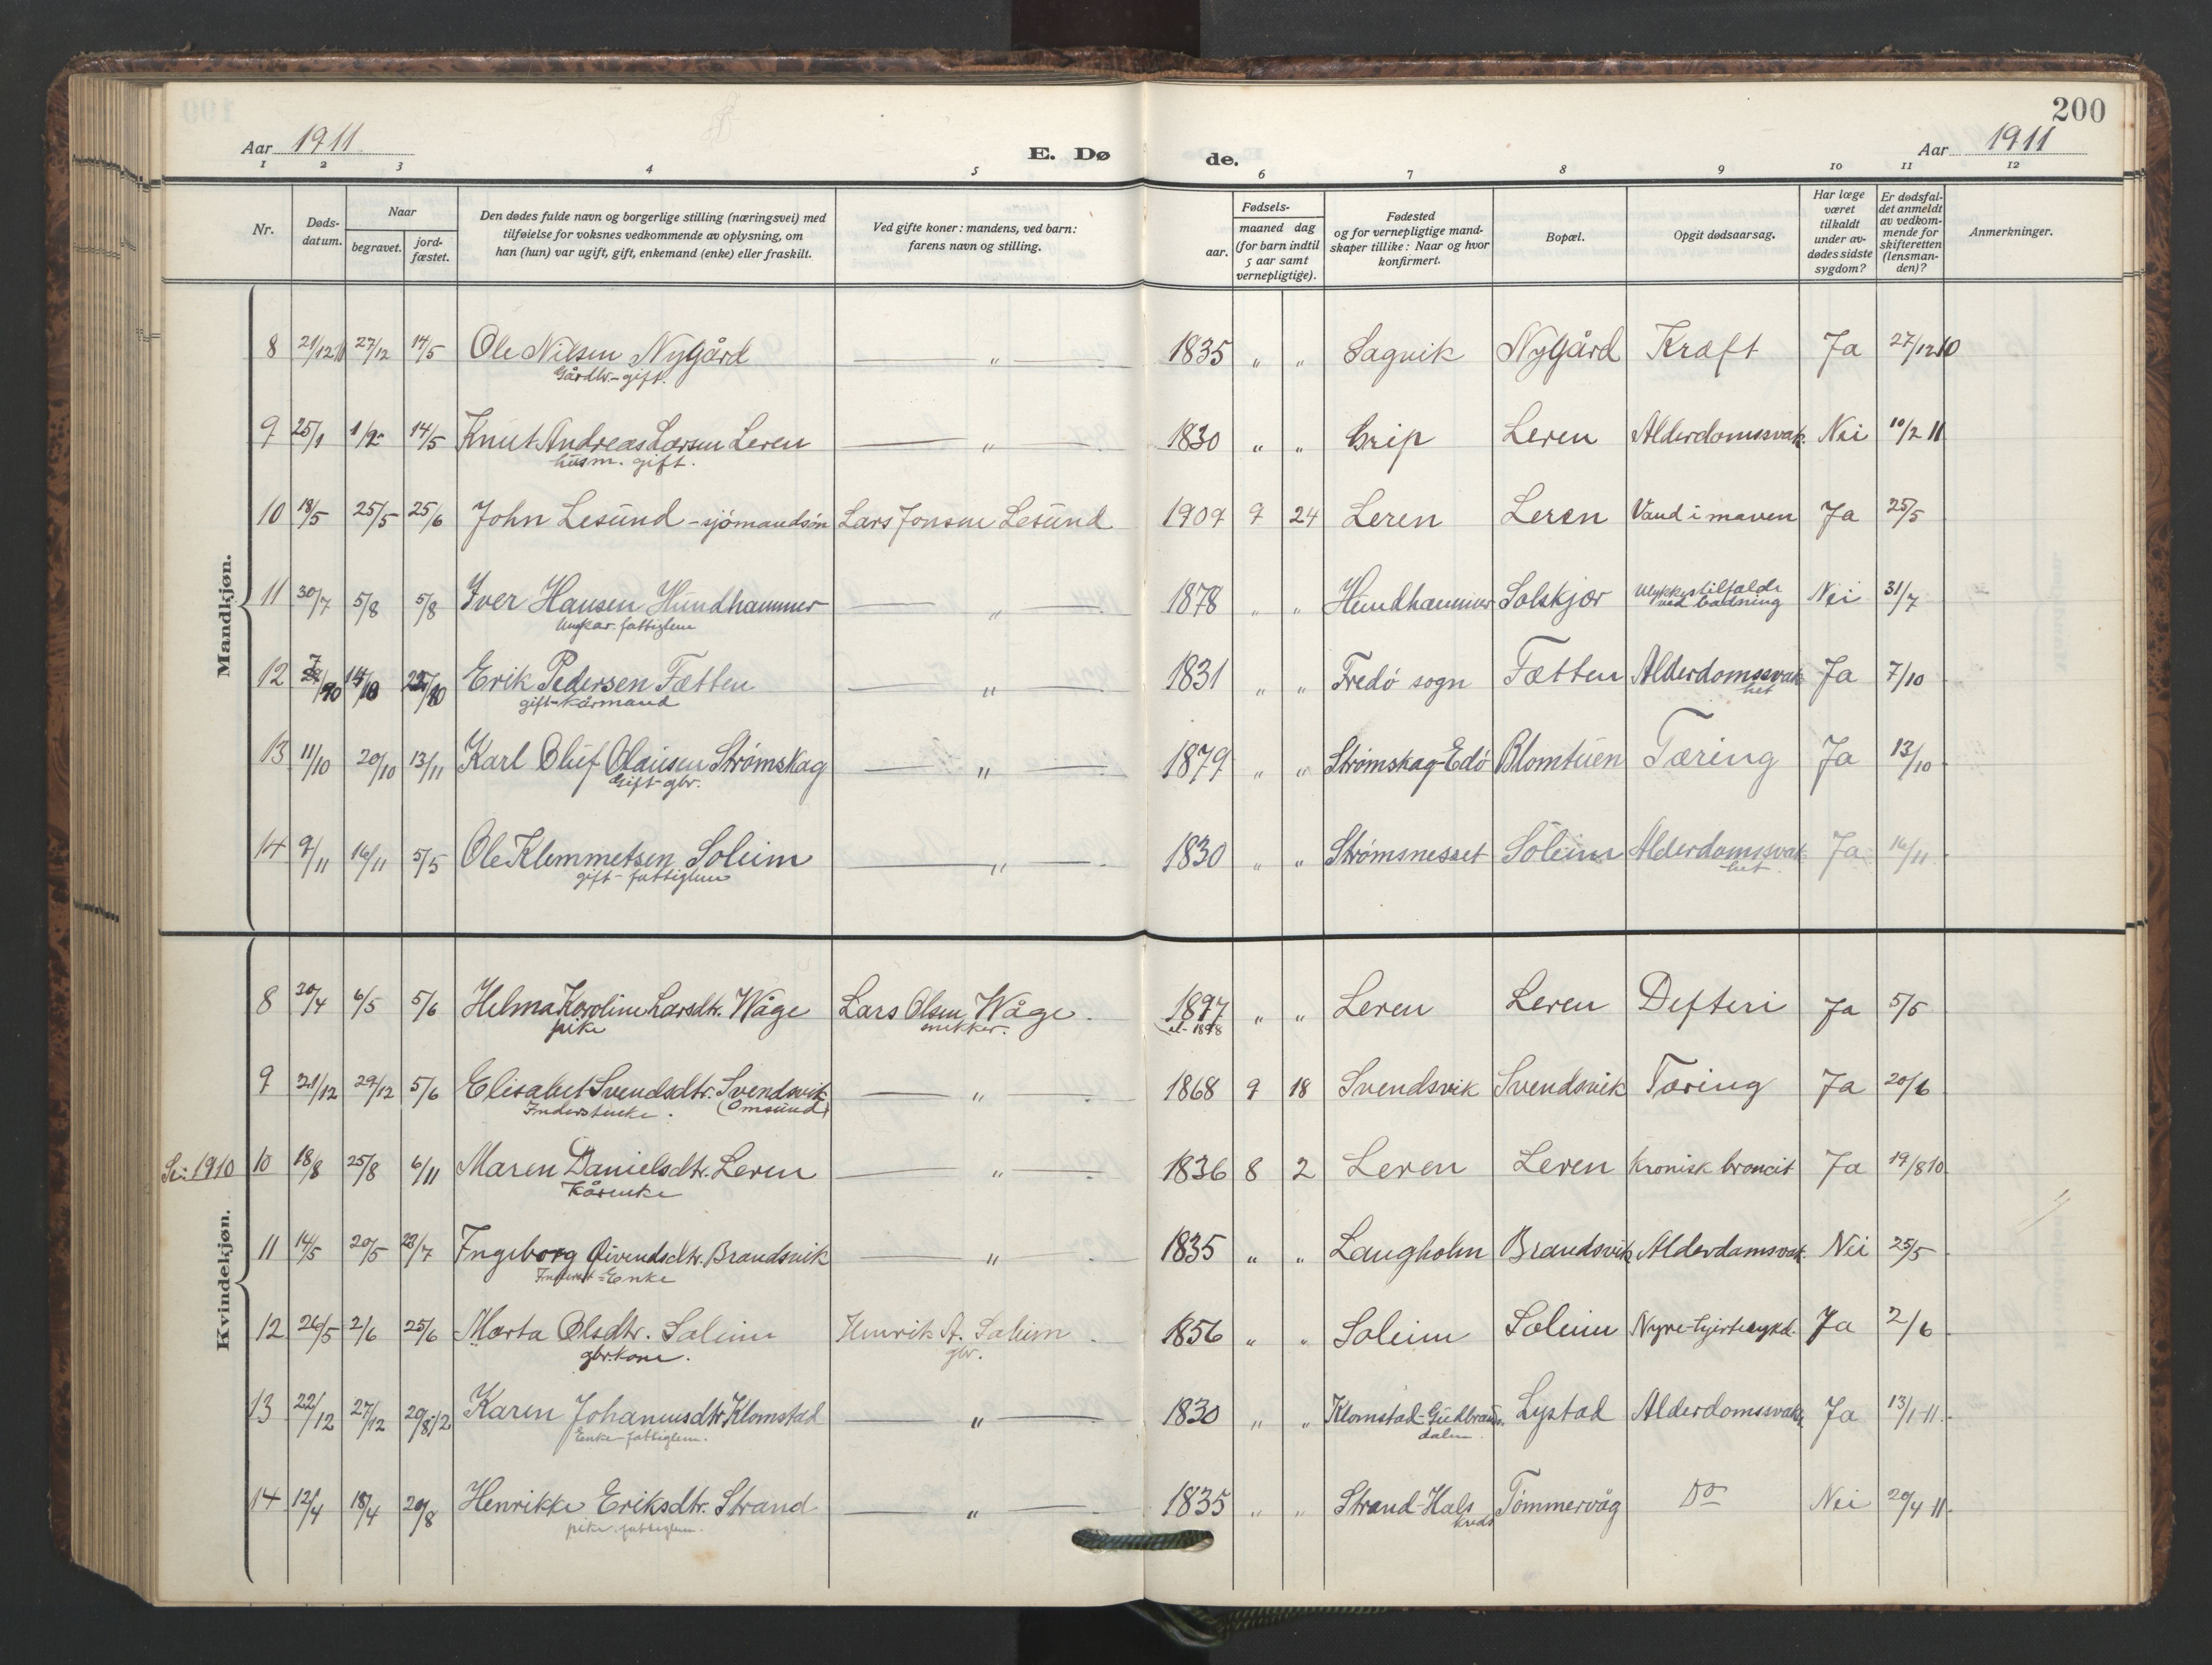 200
Aar 1911
E. Dø
de.
Aar 1911
1 2 3 4 5 6 7 8 9 10 11 12
Nr.
Døds-
datum.
Naar
begravet.
jord-
fæstet.
Den dødes fulde navn og borgerlige stilling (næringsvei) med
tilføielse for voksnes vedkommende av oplysning, om
han (hun) var ugift, gift, enkemand (enke) eller fraskilt.
Ved gifte koner: mandens, ved barn:
farens navn og stilling.
Fødsels-
aar.
maaned dag
(for barn indtil
5 aar samt
vernepligtige).
Fødested
og for vernepligtige mand-
skaper tillike: Naar og hvor
konfirmert.
Bopæl.
Opgit dødsaarsag.
Har læge
været
tilkaldt
under av-
dødes sidste
sygdom?
Er dødsfal-
det anmeldt
av vedkom-
mende for
skifteretten
(lensman-
den)?
Anmerkninger.
Mandkjøn.
8 21/12 27/12 14/5 Ole Nilsen Nygård — " — 1835 " " Sagvik Nygård Kræft Ja 27/12 10
Gårdbr.-gift.
9 25/1 1/2 14/5 Knut Andreas Larsen Leren — " — 1830 " " Grip Leren Alderdomssvak Nei 10/2 11
husm. gift.
10 18/5 25/5 25/6 John Lesund - sjömandsön Lars Jonsen Lesund 1909 9 24 Leren Leren Vand i maven Ja 25/5
11 30/7 5/8 5/8 Iver Hansen Hundhammer — " — 1878 " " Hundhammer Solskjær Ulykkestilfælde Nei 31/7
Ungkar-fattiglem
ved badning
12 7/10 14/10 22/10 Erik Pedersen Fætten — " — 1831 " " Fredö sogn Fætten Alderdomssvak Ja 7/10
gift-kårmand
het
13 11/10 20/10 13/11 Karl Oluf Olausen Strømskag — " — 1879 " " Strømskag-Edö Blomtuen Tæring Ja 13/10
Gift-gbr.
14 9/11 16/11 5/5 Ole Klemmetsen Soleim — " — 1830 " " Strømsnesset Soleim Alderdomssvak Ja 16/11
gift-fattiglem
het.
Kvindekjøn.
8 30/4 6/5 5/6 Helma Karoline Larsdtr. Wåge Lars Olsen Wåge. 1897 " " Leren Leren Defteri Ja 5/5
pike
snekker.
el. 1898
9 21/12 29/12 5/6 Elisabet Svendsdtr. Svendsvik — " — 1868 9 18 Svendsvik Svendsvik Tæring Ja 20/6
Inderstenke.
(Omsund)
Se: 1910 10 18/8 25/8 6/11 Maren Danielsdtr. Leren — " — 1836 8 2 Leren Leren Kronisk broncit Ja 19/8 10
Kårenke
11 14/5 20/5 23/7 Ingeborg Eivendsdtr. Brandsvik — " — 1835 " " Langholm Brandsvik Alderdomsvak Nei 25/5
Inderst-Enke
12 26/5 2/6 25/6 Marta Olsdtr. Soleim Henrik A. Soleim 1856 " " Soleim Soleim Nyre-hjertesykd. Ja 2/6
gbr.kone.
gbr.
13 22/12 27/12 20/8 12 Karen Johannesdtr. Klomstad — " — 1830 " " Klomstad-Gudbrands. Lystad Alderdomssvakh. Ja 13/1-11.
Enke-fattiglem.
dalen.
14 12/4 18/4 20/8 Henrikke Eriksdtr. Strand — " — 1835 " " Strand-Hals Tömmervåg Do Nei 20/4-11.
pike-fattiglem.
kreds